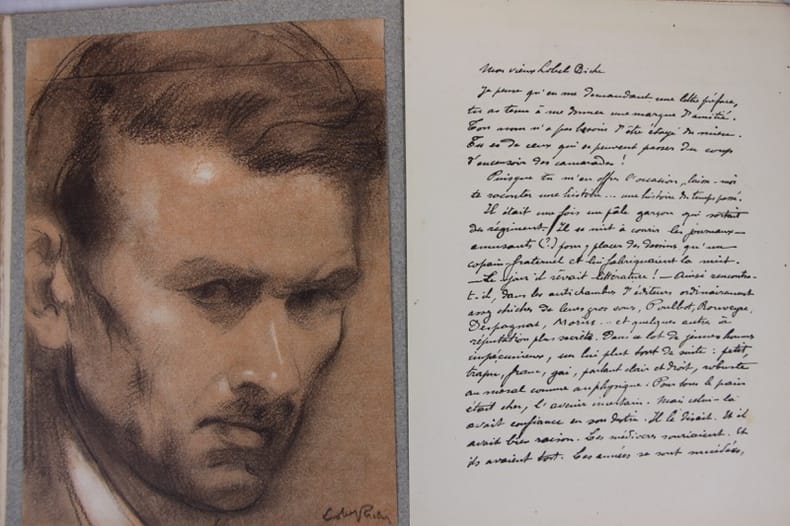 Lobel Riche
Mon vieux Lobel Riche
Je pense qu'en me demandant une lettre préface,
tu as tenu à me donner une marque d'amitié.
Ton nom n'a pas besoin d'être étayé du mien.
Tu es de ceux qui se peuvent passer du coup
d'encensoir des camarades !
Puisque tu m'en offres l'occasion, laisse-moi
te raconter une histoire... une histoire du temps passé.
Il était une fois un pâle garçon qui sortait
du régiment. Il se mit à courir les journaux
amusants (?) pour y placer des dessins qu'un
copain fraternel et lui fabriquaient la nuit.
— Le jour il rêvait littérature ! — Ainsi rencontra-
t-il, dans les antichambres d'éditeurs ordinairement
assez chiches de leurs gros sous, Poulbot, Rouveyre,
Despagnat, Moriss... et quelques autres à
réputation plus secrète. Dans ce lot de jeunes hommes
impécunieux, un lui plut tout de suite : petit,
trapu, franc, gai, parlant clair et droit, robuste
au moral comme au physique. Pour tous le pain
était cher, l'avenir incertain. Mais celui-là
avait confiance en son destin. Il le disait. Et il
avait bien raison. Les médiocres souriaient. Et
ils avaient tort. Les années se sont succédées,